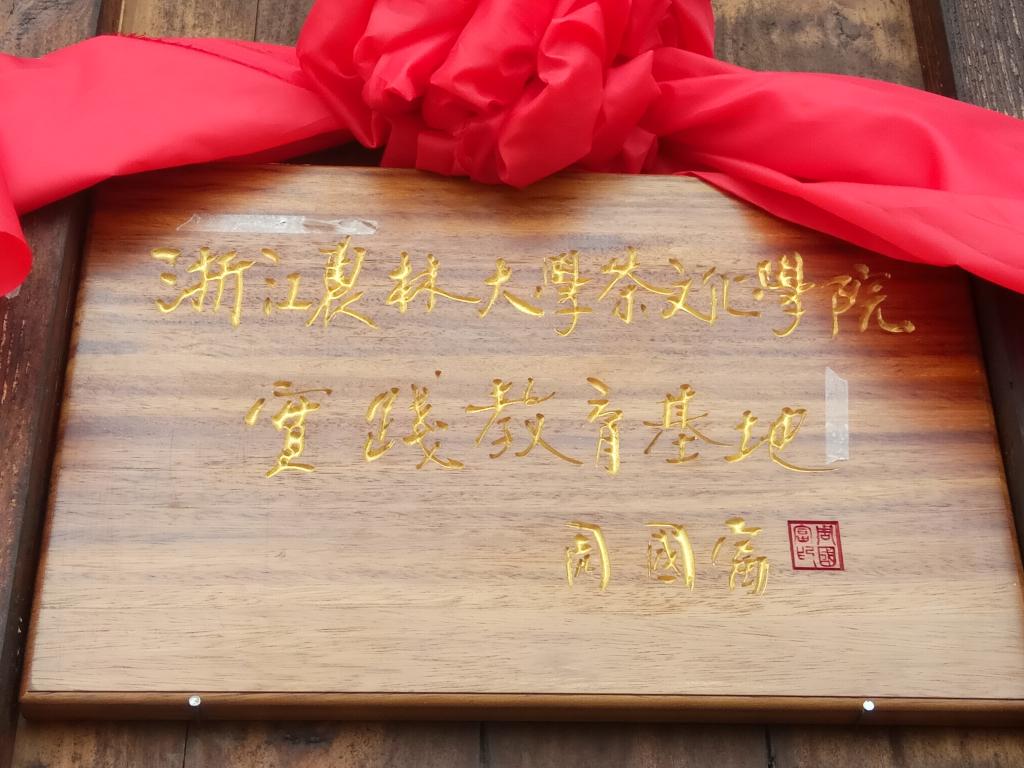 浙江農林大學茶文化學院
實踐教育基地
周國富
周國富印